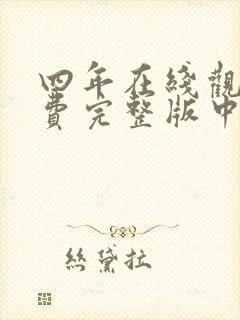 四年在綫觀
費完整版中
絲黛拉